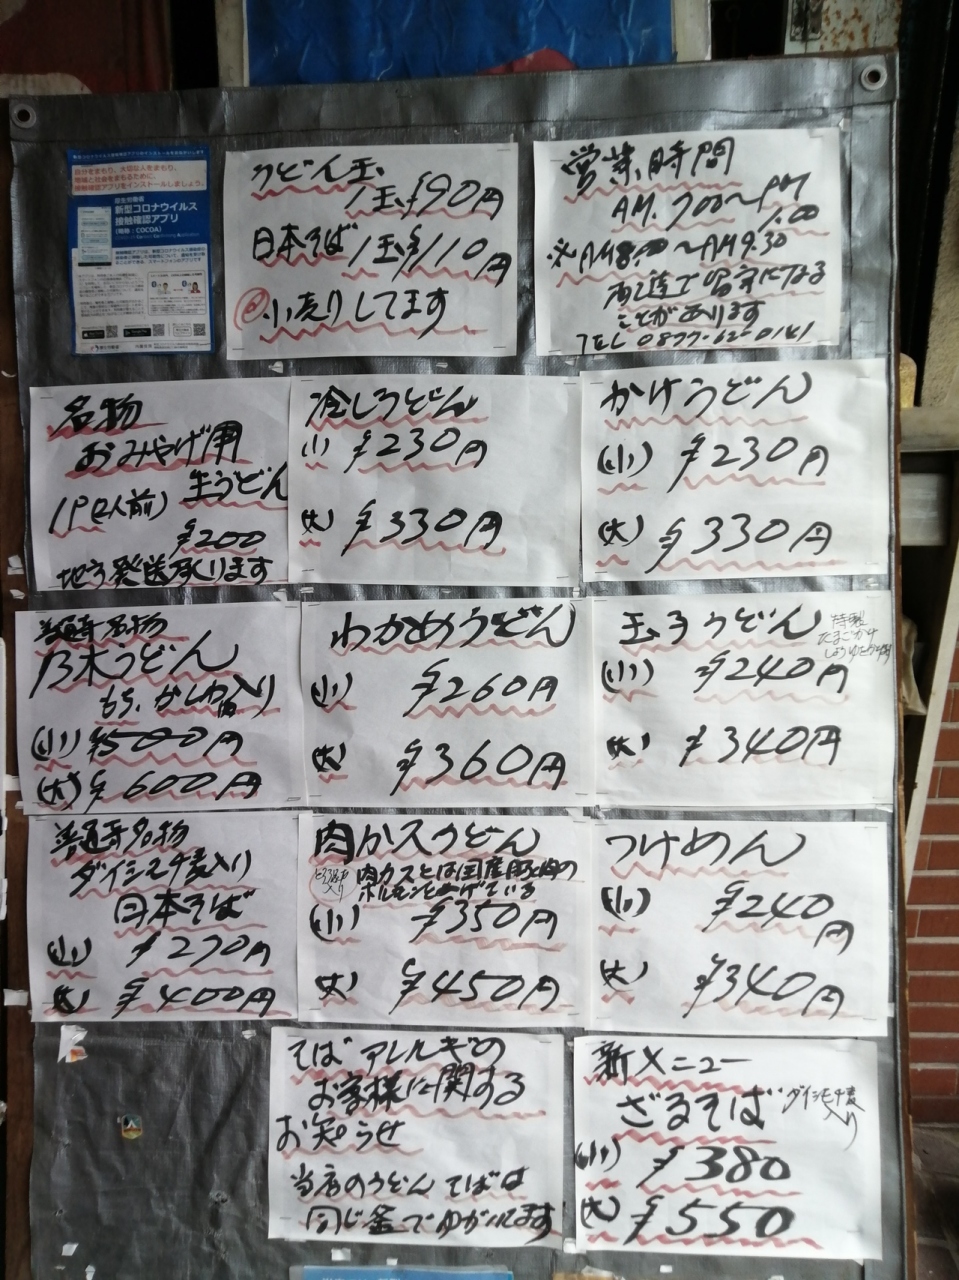 自分をまもり、大切な人をまもり、
地域と社会をまもるために、
接触確認アプリをインストールしましょう。
厚生労働省
新型コロナウイルス
接触確認アプリ
(略称：COCOA)
うどん玉
1玉¥90円
日本そば1玉¥110円
小売りしてます
営業時間
AM.7:00〜PM
1:00
※AM8:00〜AM9.30
配達で留守になる
ことがあります
TEL 0877-62-0141
名物
おみやげ用
生うどん
1P(2人前)
¥200
地方発送承ります
冷しうどん
(小) ¥230円
(大) ¥330円
かけうどん
(小) ¥230円
(大) ¥330円
善通寺名物
乃木うどん
もち、かしわ入り
(小) ¥500円
(大) ¥600円
わかめうどん
(小) ¥260円
(大) ¥360円
玉子うどん
特製
たまごかけ
しょうゆ
(小) ¥240円
(大) ¥340円
善通寺名物
ダイシモチ麦入り
日本そば
(小) ¥270円
(大) ¥400円
肉カスうどん
肉カスとは国産豚
ホルモンをあげている
(小) ¥350円
(大) ¥450円
つけめん
(小) ¥240円
(大) ¥340円
そばアレルギの
お客様に関する
お知らせ
当店のうどんそばは
同じ釜でゆがいてます
新メニュー
ざるそば ダイシモチ麦
入り
(小) ¥380
(大) ¥550